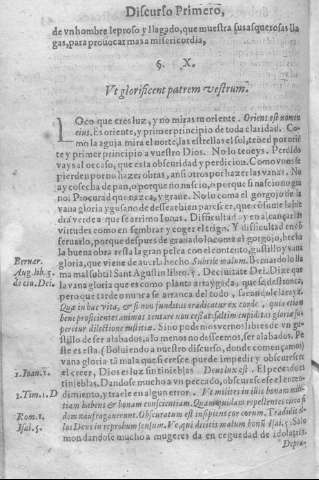 Discurso Primero,
de vn hombre leproso y llagado, que muestra sus asquerosas lla
gas, para prouocar mas a misericordia,
§. X.
Vt glorificent patrem vestrum.
LOco que eres luz, y no miras tu oriente. Oriens est nomen
eius. Es oriente, y primer principio de toda claridad. Co-
mo la aguja mira el norte, las estrellas el sol, tened por orié
te y primer principio a vuestro Dios. No lo toqueys. Perdido
vays al ocaso, que es la obscuridad y perdicion. Como vnos se
pierden por no hazer obras, ansi otros por hazerlas vanas. No
ay cosecha de pan, o porque no nascio, o porque si nascio no gra
no: Procurad que nazca, y grane. No lo coma el gorgojo de la
vana gloria y gusano de dessear bien parescer, que
drà verde a que se arrimo Ionas. Difficultad ay en alcançar las
virtudes como en sembrar y coger el trigo. Y difficultad en cõ
seruarlo, porque despues de granado lo come el gorgojo, hecha
la buena obra assi la lagran pelea con el contento, gustillo y vana
gloria, que viene de auerla hecho. Subrile malum. Bernardo lo lla
ma mal subtil Sant Agustin libro.5. De ciuitate Dei. Dize que
la vana gloria que es como planta arraygada, que se destronca,
pero que tarde o nunca se arranca del todo, se rayz.
Qua in hac vita, etsi non funditus eradicatur ex corde, quia etiam
bene proficientes animas tentare non cessat: saltim cupiditas gloriæ su
peretur dilectione iustitiæ. Sino podemos vernos libres de vn gu-
stillo de ser alabados, a lo menos no desseemos, ser alabados. Pe
ste es esta. (Boluiendo a nuestro discurso, donde començamos)
vana gloria tã mala que si cresce puede impedir y obscurescer
el creer, Dios es luz sin tinieblas. Deus lux est. El peccado es
tinieblas. Dandose mucho a vn peccado, obscurescese el enten-
dimiento, y trae le en algun error. Vt milites in illis bonam mili-
tiam habens & bonam conscientiam. Quam quidam repellentes circa fi
dem naufragauerunt. Obscuratum est insipiens cor eorum. Tradidit il-
los Deus in reprobum sensum. Ve, qui dicitis malum bonũ. Salo
mon dandose mucho a mugeres da en ceguedad de idolatria.
Depra-
Bernar.
Aug. lib. 5.
de ciu. Dei.
1. Ioan. 1.
2. Tim. 1.
Rom. 1.
Isai. 5.